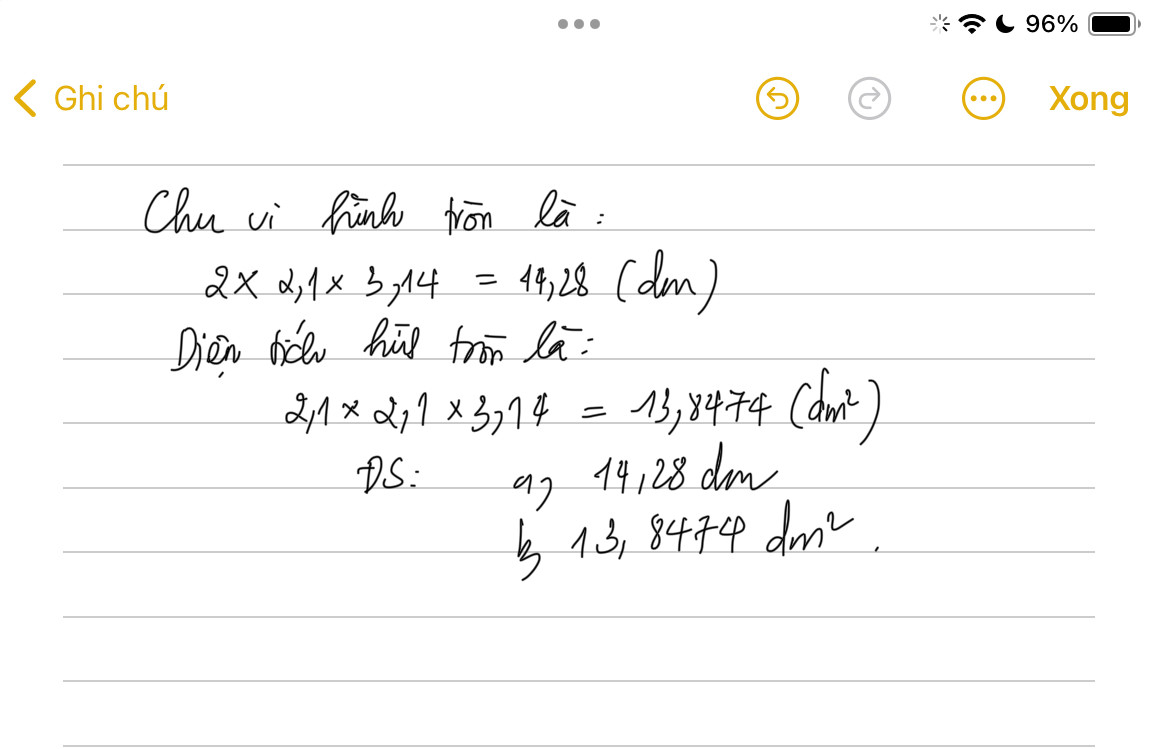 96%
Ghi chú
Xong
Chu vi hình tròn là :
2 x 2,1 x 3,14 = 14,28 (dm)
Diện tích hìn tròn là :
2,1 x 2,1 x 3,14 = 13,8474 (dm²)
ĐS: a, 14,28 dm
b, 13,8474 dm².